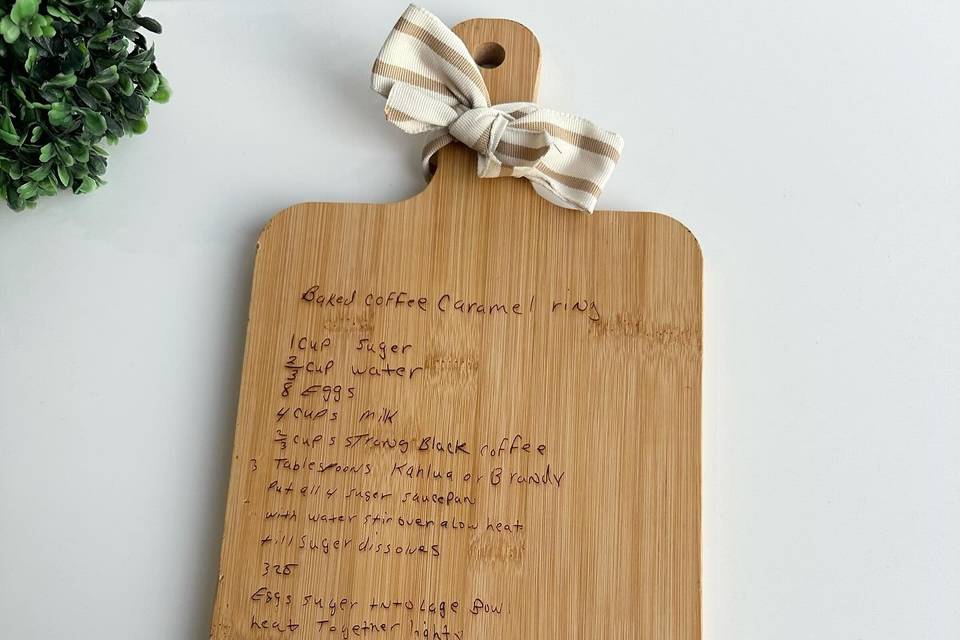 Baked coffee Caramel ring
1 cup suger
2/3 cup water
8 Eggs
4 cups milk
2/3 cups strong Black coffee
3 Tablespoons Kahlua or Brandy
Put all 4 suger saucepan
with water stir over a low heat
till suger dissolves
325
Eggs suger into Lage Bowl
heat Together lightly